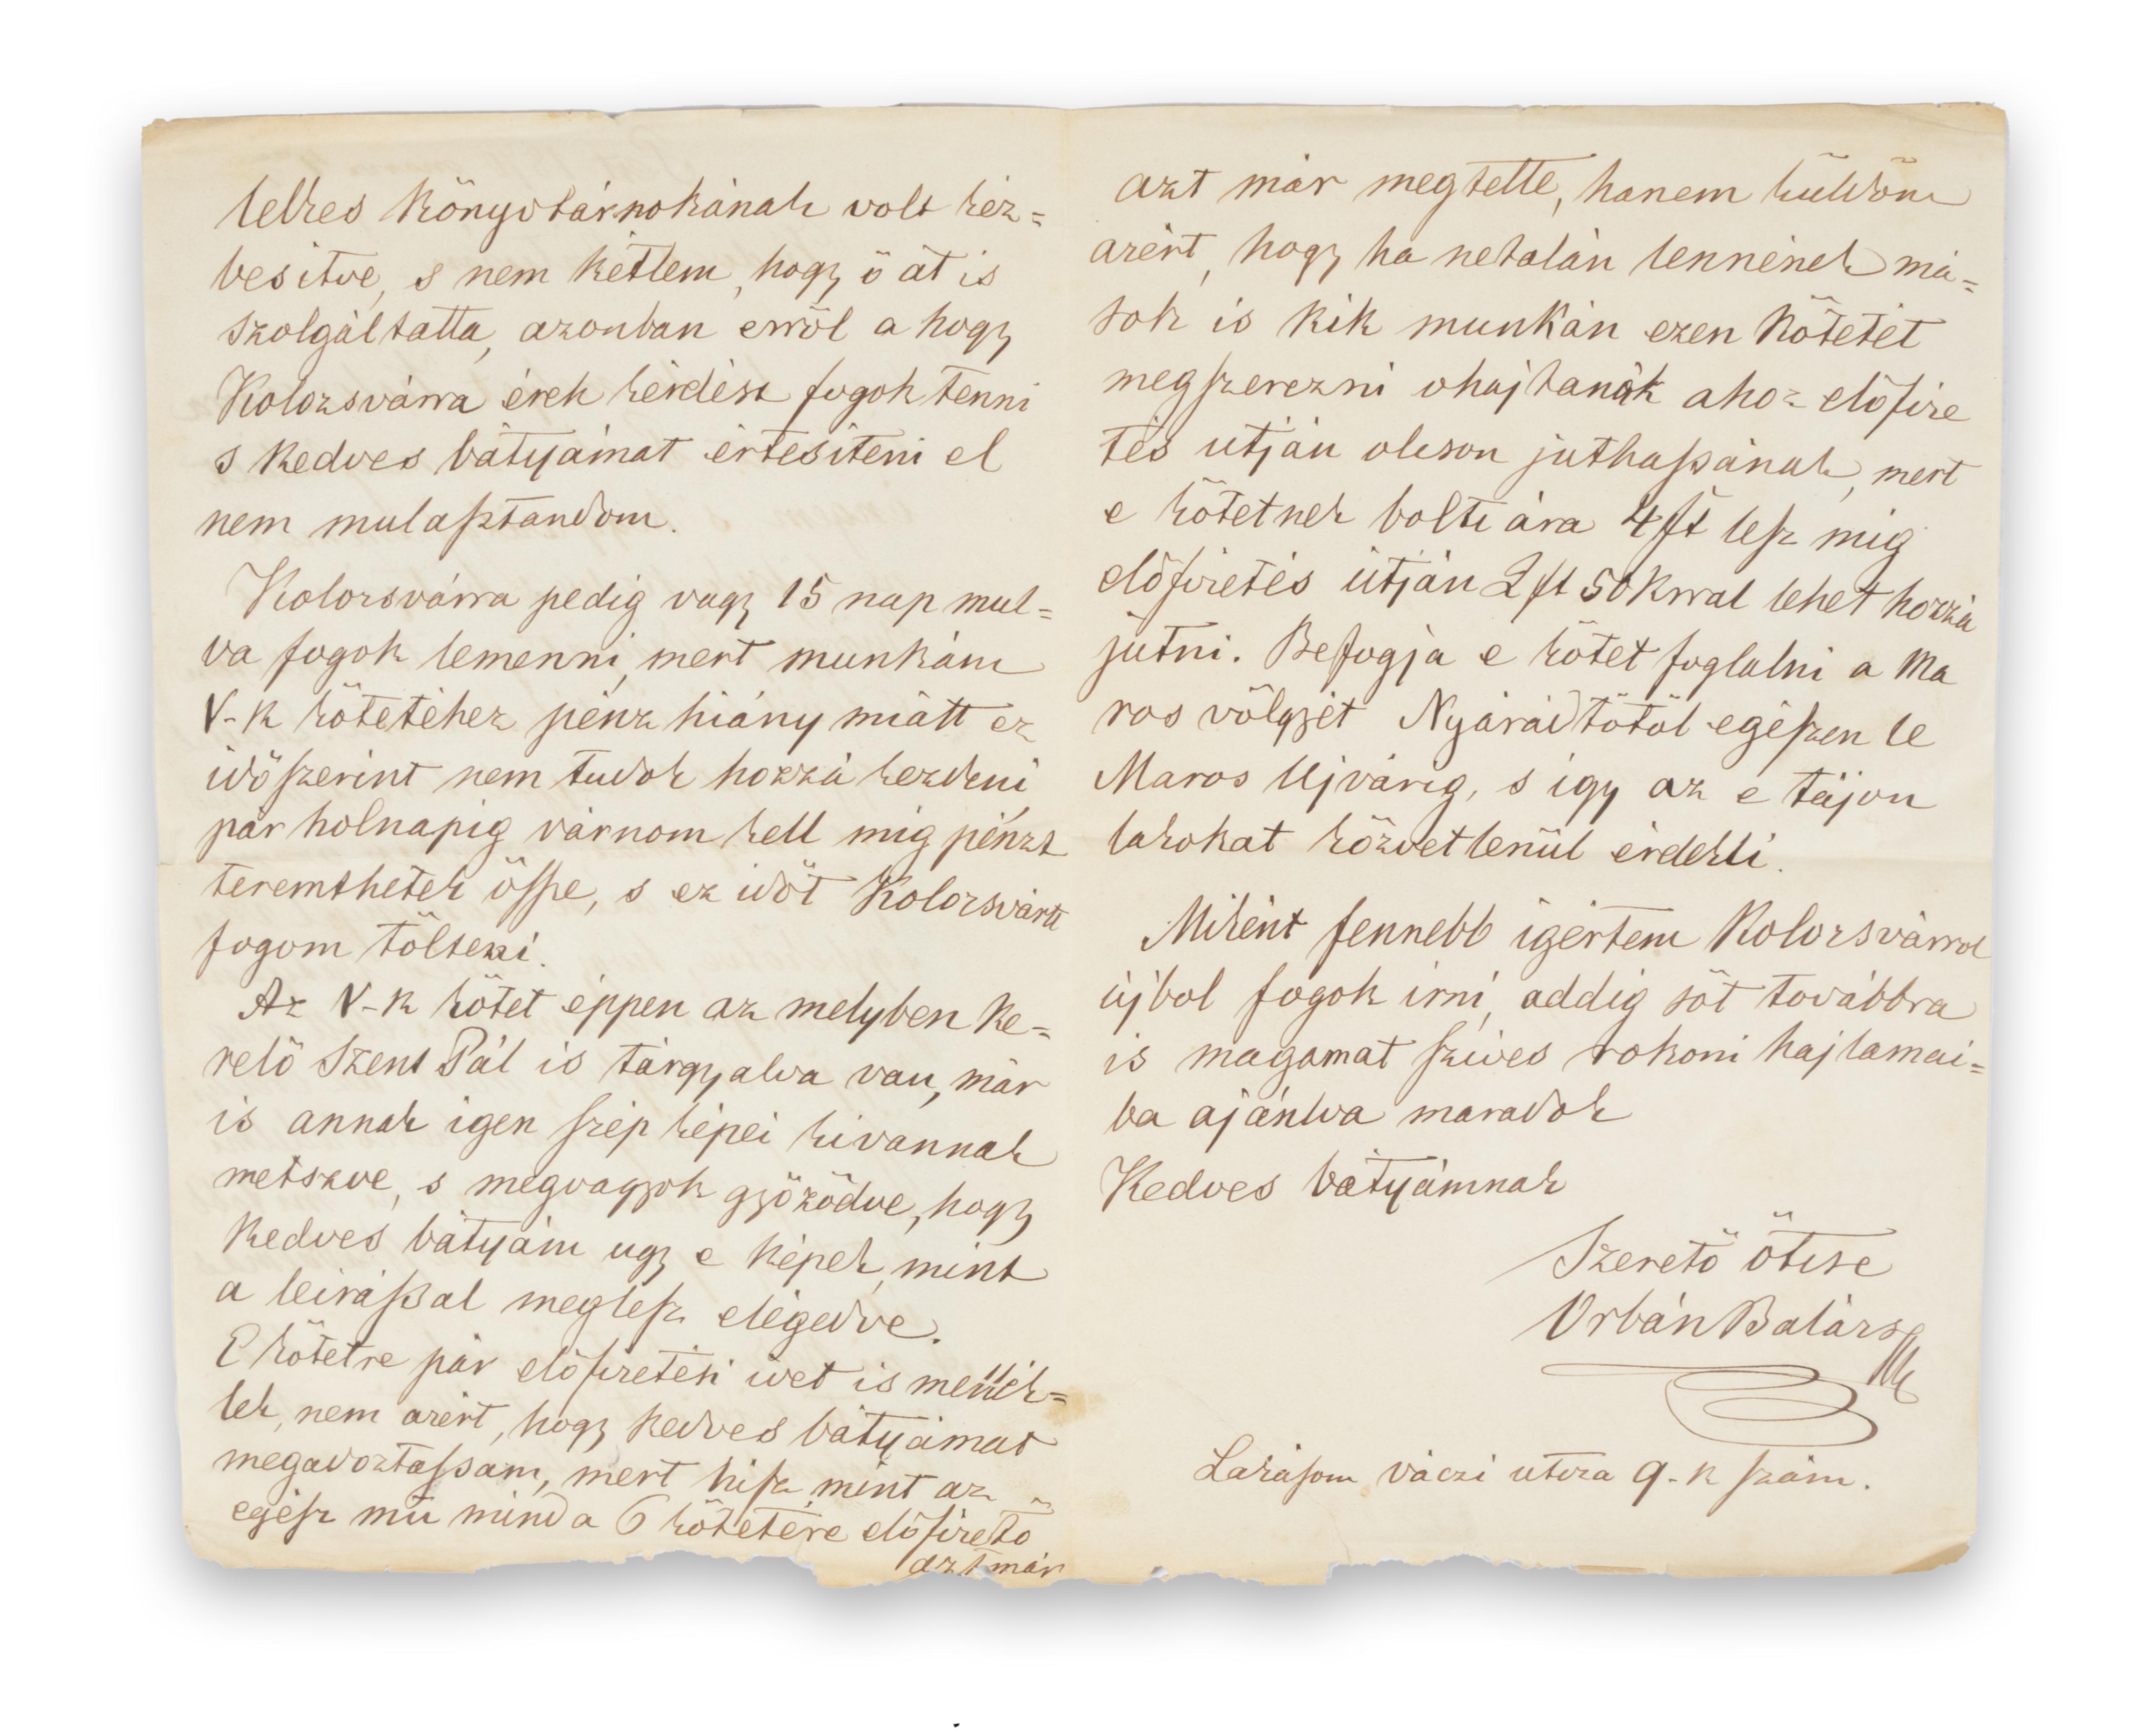 lelkes könyvtárnokának volt kéz=
besitve, s nem kétlem, hogy ő át is
szolgáltatta, azonban erről a hogy
Kolozsvárra érek kérdést fogok tenni
s kedves bátyámat értesiteni el
nem mulasztandom.
Kolozsvárra pedig vagy 15 nap mul=
va fogok lemenni, mert munkám
V-k kötetéhez pénz hiány miátt ez
időszerint nem tudok hozzá kezdeni,
pár holnapig várnom kell mig pénzt
teremthetek össze, s ez időt Kolozsvártt
fogom tölteni.
Az V-k kötet éppen az melyben Ke=
relő Szent Pál is tárgyalva van, már
is annak igen szép képei kivannak
metszve, s megvagyok győződve, hogy
Kedves bátyám ugy e képek, mint
a leirással meglesz elégedve.
E kötetre pár előfizetési ivet is mellék=
lek, nem azért, hogy kedves bátyámat
megadoztassam, mert hisz mint az
egész mű mind a 6 kötetére előfizető
azt már
azt már megtette, hanem küldöm
azért, hogy ha netalán lennének má=
sok is kik munkán ezen kötetét
megszerezni ohajtanák ahoz előfize
tés utján olcson juthassanak, mert
e kötetnek bolti ára 4 ft lesz mig
előfizetés útján 2 ft 50 krral lehet hozzá
jutni. Befogja e kötet foglalni a Ma
ros völgyét Nyárádtőtöl egészen le
Maros Ujvárig, s igy az e tájon
lakokat közvetlenül érdekli.
Miként fennebb igértem Kolozsvárrol
újbol fogok irni, addig sőt továbbra
is magamat szives rokoni hajlamai=
ba ajánlva maradok
Kedves bátyámnak
Szerető ötcse
Orbán Balázs
Lakásom váczi utcza 9-k szám.